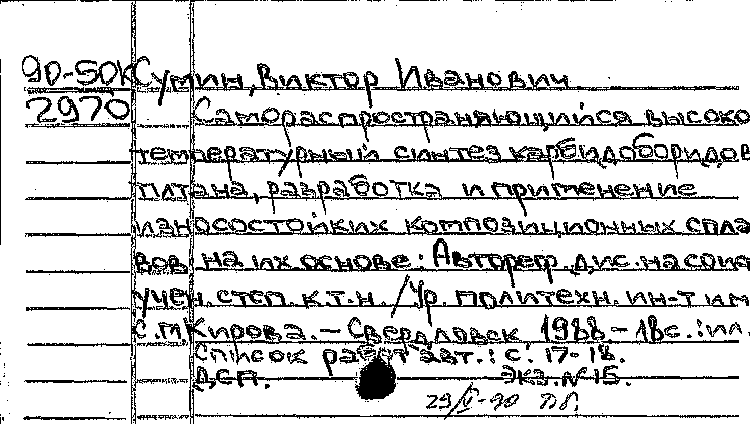 90-50к Сумин, Виктор Иванович
2970 Самораспространяющийся высоко
температурный синтез карбидоборидов
титана, разработка и применение
износостойких композиционных спла
вов на их основе: Автореф. дис. на соис
учен. степ. к.т.н. / Ур. политехн. ин-т им
С.М. Кирова. – Свердловск 1988. – 18с.: ил.
Список работ авт.: с. 17-18.
ДСП. Экз. № 15.
29/V-90